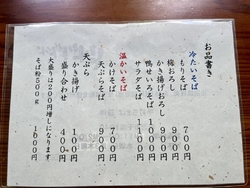 お品書き
冷たいそば
もりそば 700円
梅おろし 900円
かき揚げおろし 900円
鴨せいろそば 1100円
サラダそば 1100円
温かいそば
かけそば 700円
天ぷらそば 900円
天ぷら
かき揚げ 100円
盛り合わせ 400円
大盛りは200円増しになります
そば粉500g 1000円